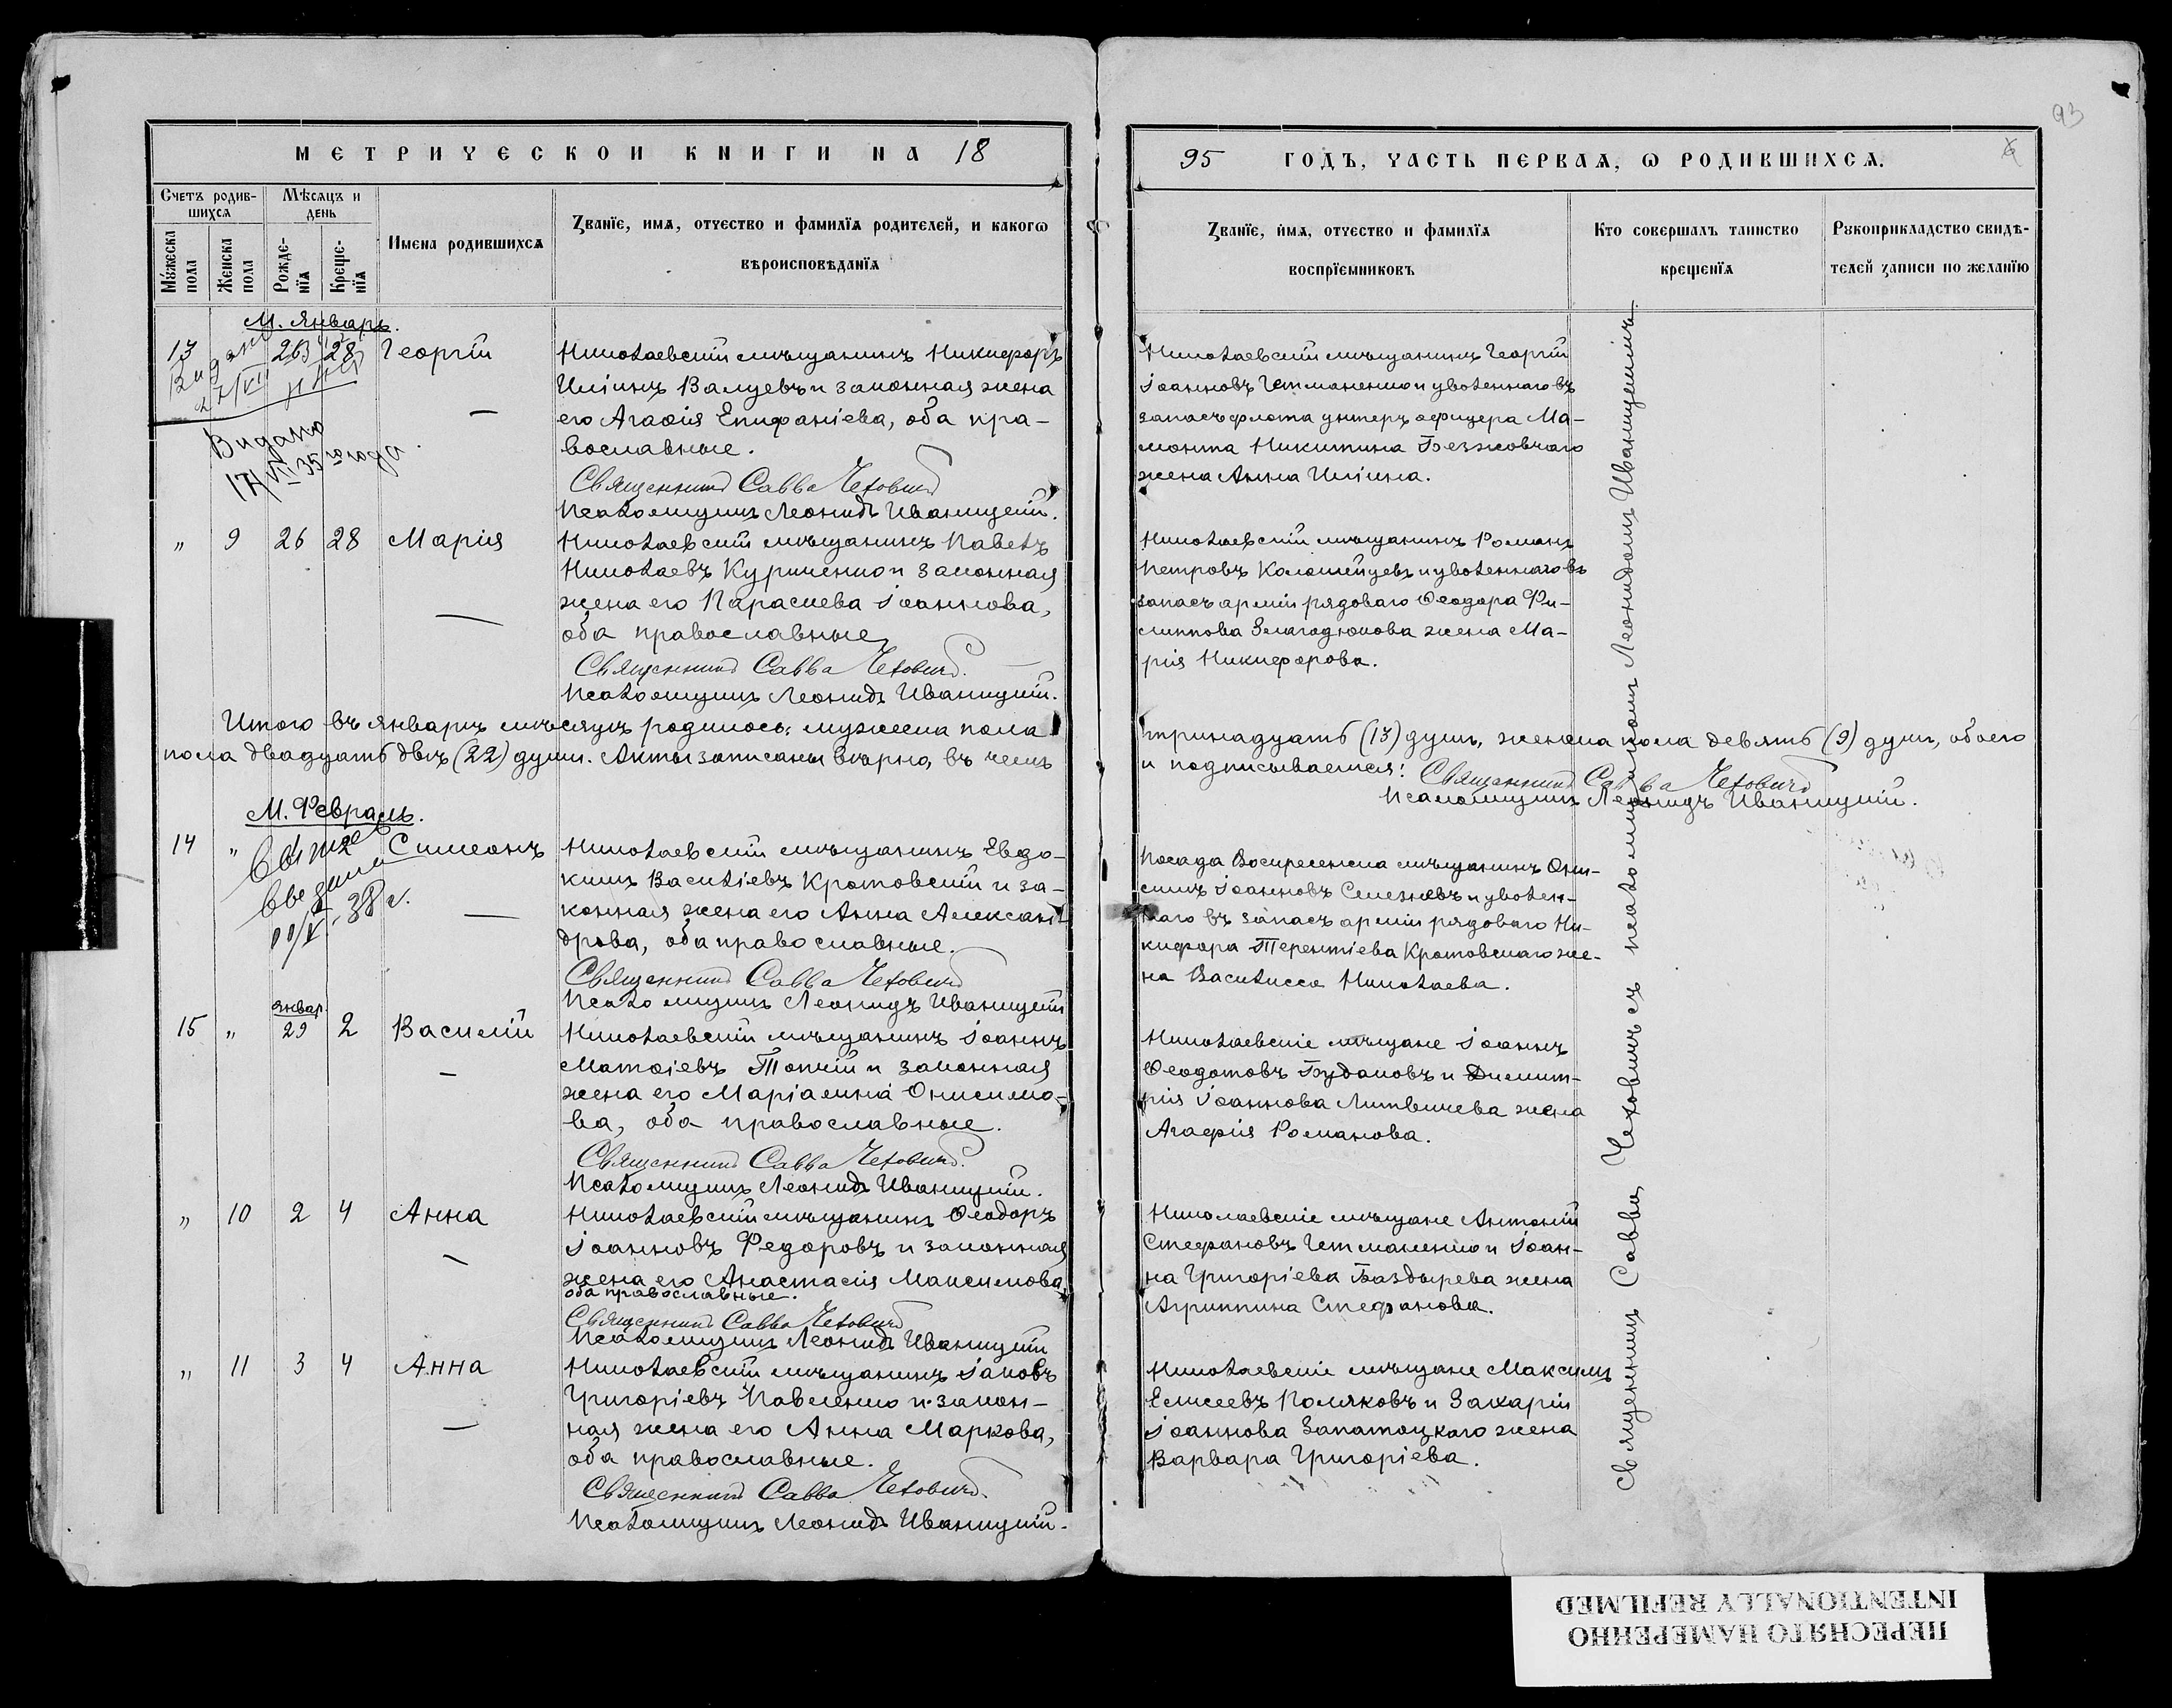 93
МЕТРИЧЕСКОЙ КНИГИ НА 18
95 ГОДЪ, ЧАСТЬ ПЕРВАЯ, Ѡ РОДИВШИХСЯ.
Счетъ родив-
шихся
Мѣсяцъ и
день
Мужеска
пола
Женска
пола
Рожде-
нїя
Креще-
нїя
Имена родившихся
Званїе, имя, отчество и фамилїя родителей, и какогѡ
вѣроисповѣданїя
Званїе, имя, отчество и фамилїя
воспрїемниковъ
Кто совершалъ таинство
крещенїя
Рукоприкладство свидѣ-
телей записи по желанїю
М. Январь.
13 28 Георгій
Николаевскій мѣщанинъ Никифоръ
Иліинъ Валуевъ и законная жена
его Агаѳія Епифаніева, оба пра-
вославные.
Священникъ Савва Чеховичъ
Псаломщикъ Леонидъ Иваницкій.
Видано
17/VII 35 го года.
Николаевскій мѣщанинъ Георгій
Іоанновъ Гетманенко и уволеннаго въ
запасъ флота унтеръ офицера Ма-
монта Никитина Безжовчаго
жена Анна Иліина.
" 9 26 28 Марія
Николаевскій мѣщанинъ Павелъ
Николаевъ Куриченко и законная
жена его Параскева Іоаннова,
оба православные
Священникъ Савва Чеховичъ.
Псаломщикъ Леонидъ Иваницкій.
Николаевскій мѣщанинъ Романъ
Петровъ Коломійцевъ и уволеннаго въ
запасъ арміи рядоваго Ѳеодора Фи-
липпова Благодюкова жена Ма-
рія Никифорова.
Итого въ январѣ мѣсяцѣ родилось: мужеска пола
тринадцать (13) душъ, женска пола девять (9) душъ, обоего
пола двадцать двѣ (22) души. Акты записаны вѣрно, въ чемъ
и подписываемся: Священникъ Савва Чеховичъ
Псаломщикъ Леонидъ Иваницкій.
М. Февраль.
14 " Симеонъ
Николаевскій мѣщанинъ Евдо-
кимъ Василіевъ Кротовскій и за-
конная жена его Анна Алексан-
дрова, оба православные.
Священникъ Савва Чеховичъ
Псаломщикъ Леонидъ Иваницкій
38 г.
Посада Воскресенска мѣщанинъ Они-
симъ Іоанновъ Селезневъ и уволен-
наго въ запасъ арміи рядоваго Ни-
кифора Терентіева Кротовскаго же-
на Василисса Николаева.
январ.
15 " 29 2 Василій
Николаевскій мѣщанинъ Іоаннъ
Матѳіевъ Топчій и законная
жена его Маріамна Онисимо-
ва, оба православные.
Священникъ Савва Чеховичъ.
Псаломщикъ Леонидъ Иваницкій.
Николаевскіе мѣщане Іоаннъ
Ѳеодотовъ Будаковъ и Димит-
рія Іоаннова Литвичева жена
Агафія Романова.
" 10 2 4 Анна
Николаевскій мѣщанинъ Ѳеодоръ
Іоанновъ Федоровъ и законная
жена его Анастасія Максимова
оба православные.
Священникъ Савва Чеховичъ
Псаломщикъ Леонидъ Иваницкій
Николаевскіе мѣщане Антоній
Стефановъ Гетманенко и Іоан-
на Григоріева Баздырева жена
Агриппина Стефанова.
" 11 3 4 Анна
Николаевскій мѣщанинъ Іаковъ
Григоріевъ Павленко и закон-
ная жена его Анна Маркова,
оба православные.
Священникъ Савва Чеховичъ.
Псаломщикъ Леонидъ Иваницкій.
Николаевскіе мѣщане Максимъ
Елисеевъ Поляковъ и Захарій
Іоаннова Запатоцкаго жена
Варвара Григоріева.
Священникъ Савва Чеховичъ съ псаломщикомъ Леонидомъ Иваницкимъ
ПЕРЕСНЯТО НАМЕРЕННО
INTENTIONALLY REFILMED